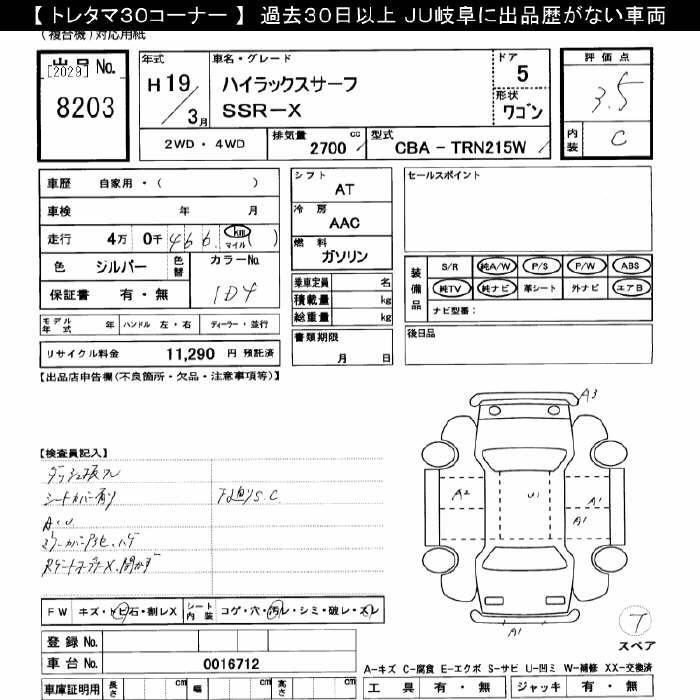 【 トレタマ30コーナー 】 過去30日以上 JU岐阜に出品歴がない車両
(複合機)対応用紙
出品No.
[2029]
8203
年式
H19/3月
車名・グレード
ハイラックスサーフ
SSR-X
ドア
5
形状
ワゴン
評価点
3.5
内装
C
2WD・4WD
排気量
2700 cc
型式
CBA - TRN215W
車歴 自家用・( )
車検 年 月
走行 4万 0千 466 km マイル ( )
色 シルバー 色替 カラーNo.
1D4
保証書 有・無
モデル年式 年 ハンドル 左・右 ディーラー・並行
リサイクル料金 11,290 円 預託済
シフト
AT
冷房
AAC
燃料
ガソリン
乗車定員 名
積載量 kg
総重量 kg
書類期限
月 日
セールスポイント
装備品
S/R 純A/W P/S P/W ABS
純TV 純ナビ 革シート 外ナビ エアB
ナビ型番:
後日品
【出品店申告欄(不良箇所・欠品・注意事項等)】
【検査員記入】
シートカバー有り
下廻りS.C
A.U
A3
A2
U1
A1
A1
A1
T
スペア
FW キズ・トビ石・割レX シート内装 コゲ・穴・汚レ・シミ・破レ・スレ
登録No.
車台No. 0016712
車庫証明用 長さ cm 幅 cm 高さ cm
A-キズ C-腐食 E-エクボ S-サビ U-凹ミ W-補修 XX-交換済
工具 有・無 ジャッキ 有・無